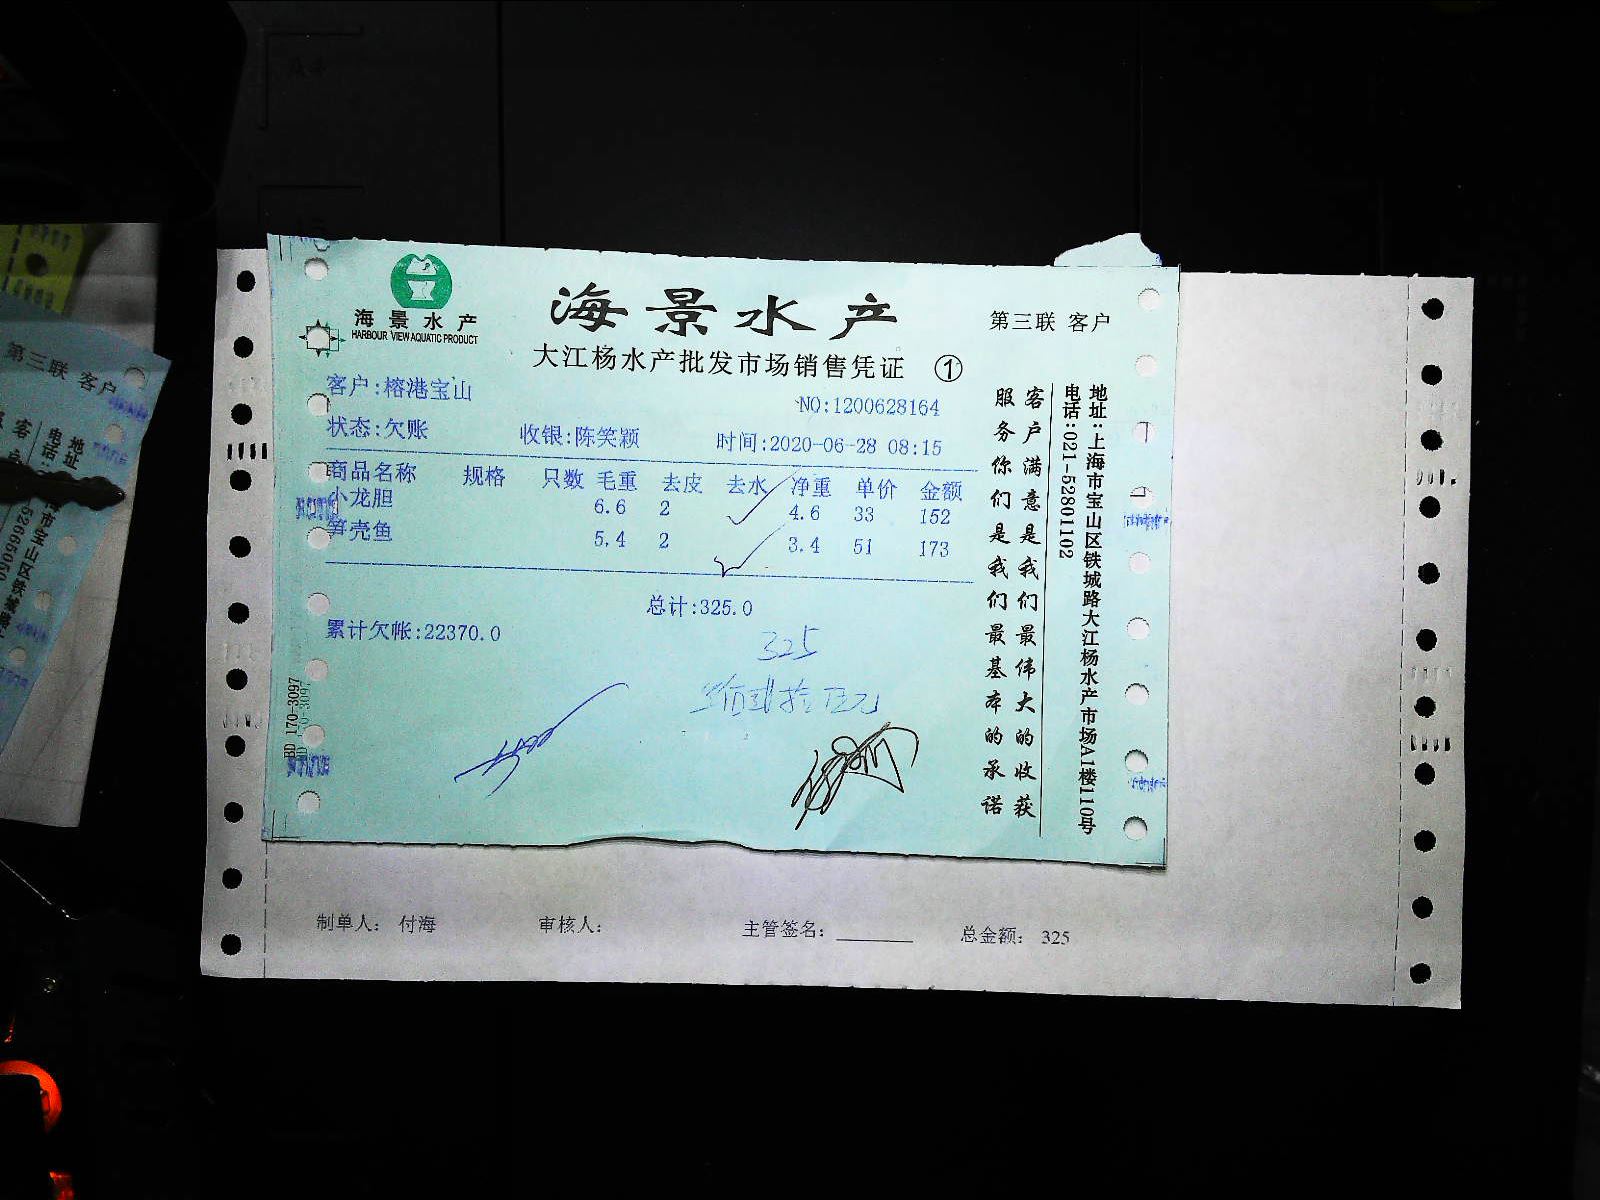 海景水产
HARBOUR VIEW AQUATIC PRODUCT
海景水产
第三联 客户
大江杨水产批发市场销售凭证 ①
客户:榕港宝山
NO:1200628164
状态:欠账 收银:陈笑颖 时间:2020-06-28 08:15
商品名称 规格 只数 毛重 去皮 去水 净重 单价 金额
小龙胆 6.6 2 4.6 33 152
笋壳鱼 5.4 2 3.4 51 173
总计:325.0
累计欠帐:22370.0
325
客户满意是我们最伟大的收获
服务你们是我们最基本的承诺
地址:上海市宝山区铁城路大江杨水产市场A1楼110号
电话:021-52801102
BD 170-3097
制单人: 付海 审核人: 主管签名: 总金额: 325
第三联 客户